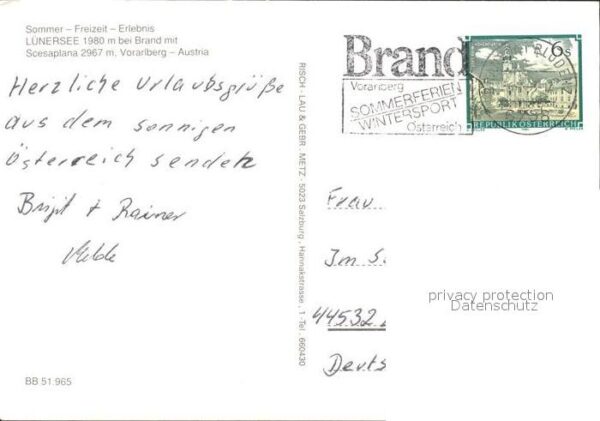 Sommer – Freizeit – Erlebnis
LÜNERSEE 1980 m bei Brand mit
Scesaplana 2967 m, Vorarlberg – Austria
Herzliche Urlaubsgrüße
aus dem sonnigen
Österreich senden
Birgit + Rainer
BB 51.965
RISCH-LAU & GEBR. METZ - 5023 Salzburg, Hannakstrasse, 1 -Tel. 660430
Brand
Vorarlberg
SOMMERFERIEN
WINTERSPORT
Österreich
BLUDENZ
6 S
REPUBLIK ÖSTERREICH
Frau
Im S
44532
Deuts
privacy protection
Datenschutz